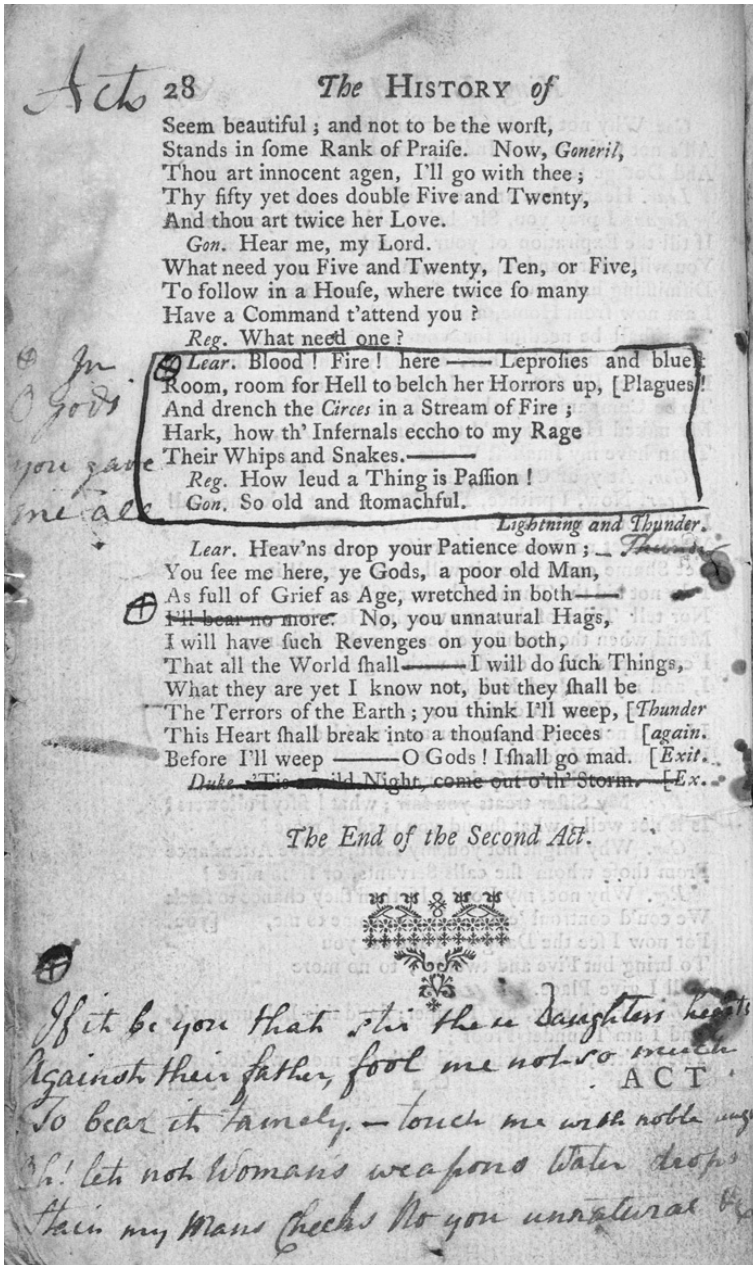 Acts 28 The HISTORY of
Seem beautiful ; and not to be the worſt,
Stands in ſome Rank of Praiſe. Now, Goneril,
Thou art innocent agen, I'll go with thee ;
Thy fifty yet does double Five and Twenty,
And thou art twice her Love.
Gon. Hear me, my Lord.
What need you Five and Twenty, Ten, or Five,
To follow in a Houſe, where twice ſo many
Have a Command t'attend you ?
Reg. What need one ?
Lear. Blood ! Fire ! here —— Leproſies and blueſt
Room, room for Hell to belch her Horrors up, [Plagues !
And drench the Circes in a Stream of Fire ;
Hark, how th' Infernals eccho to my Rage
Their Whips and Snakes.——
Reg. How leud a Thing is Paſſion !
Gon. So old and ſtomachful.
In
O Gods
you gave
me all
Lightning and Thunder.
Lear. Heav'ns drop your Patience down ; — Thunder
You ſee me here, ye Gods, a poor old Man,
As full of Grief as Age, wretched in both ——
I'll bear no more: No, you unnatural Hags,
I will have ſuch Revenges on you both,
That all the World ſhall —— I will do ſuch Things,
What they are yet I know not, but they ſhall be
The Terrors of the Earth ; you think I'll weep, [Thunder
This Heart ſhall break into a thouſand Pieces [again.
Before I'll weep —— O Gods ! I ſhall go mad. [Exit.
Duke. 'Tis a wild Night, come out o'th' Storm. [Ex.
The End of the Second Act.
If it be you that stir these Daughters hearts
Against their father, fool me not so much
ACT
To bear it tamely. — touch me with noble
Oh! let not Womans weapons Water drops
Stain my Mans Cheeks No you unnatural